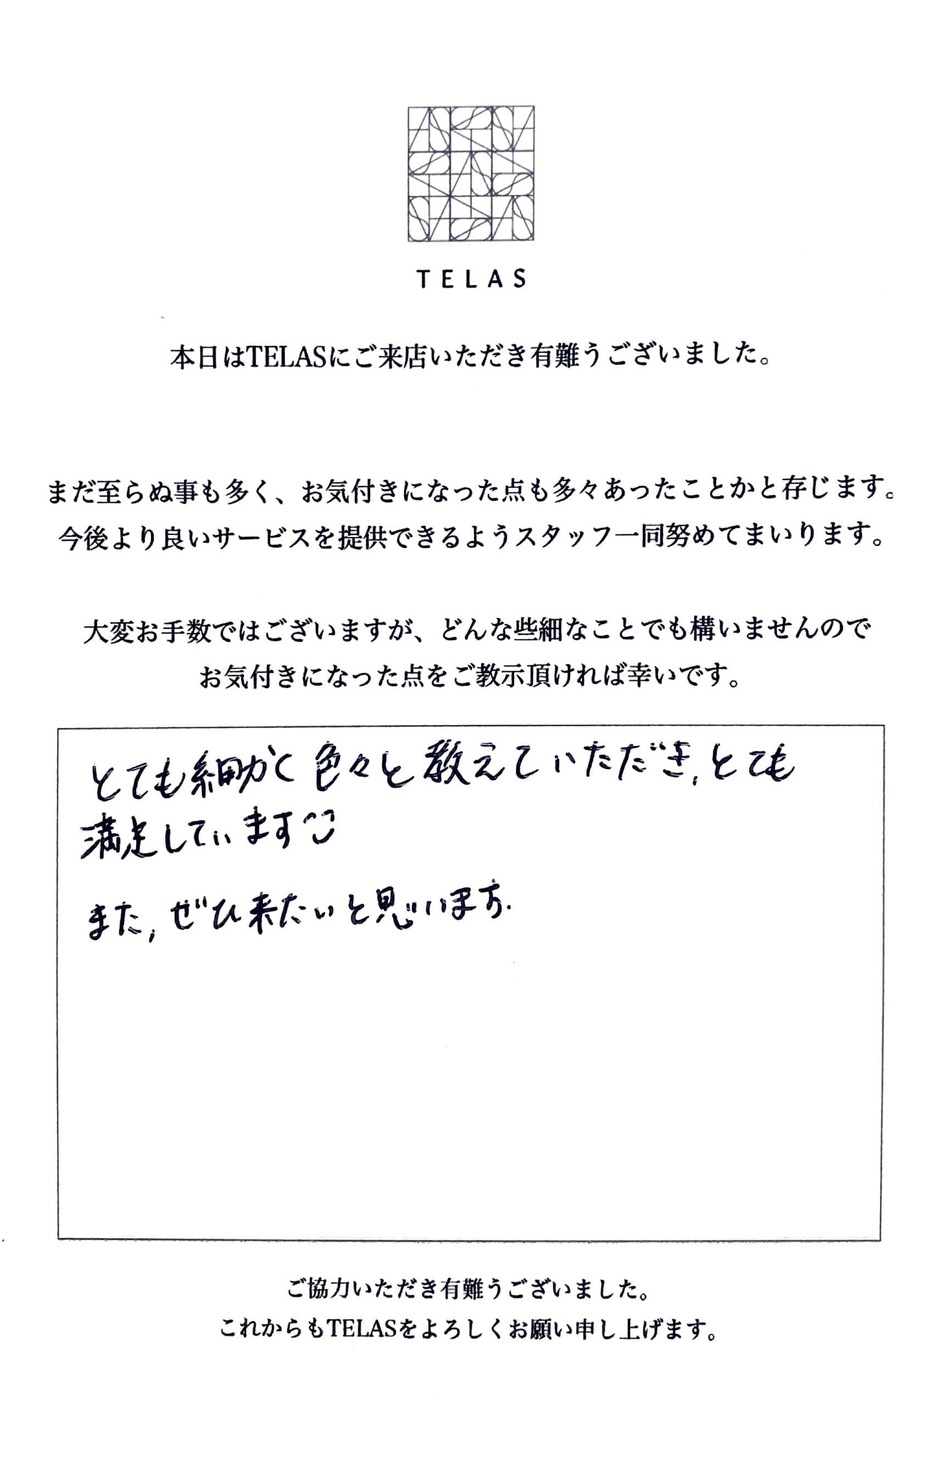 TELAS
本日はTELASにご来店いただき有難うございました。
まだ至らぬ事も多く、お気付きになった点も多々あったことかと存じます。
今後より良いサービスを提供できるようスタッフ一同努めてまいります。
大変お手数ではございますが、どんな些細なことでも構いませんので
お気付きになった点をご教示頂ければ幸いです。
とても細かく色々と教えていただき、とても
満足しています
また、ぜひ来たいと思います.
ご協力いただき有難うございました。
これからもTELASをよろしくお願い申し上げます。